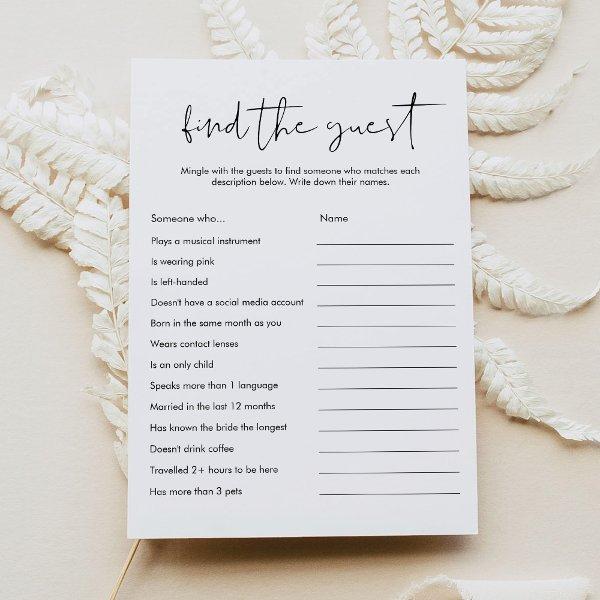 find the guest
Mingle with the guests to find someone who matches each
description below. Write down their names.
Someone who... Name
Plays a musical instrument
Is wearing pink
Is left-handed
Doesn't have a social media account
Born in the same month as you
Wears contact lenses
Is an only child
Speaks more than 1 language
Married in the last 12 months
Has known the bride the longest
Doesn't drink coffee
Travelled 2+ hours to be here
Has more than 3 pets